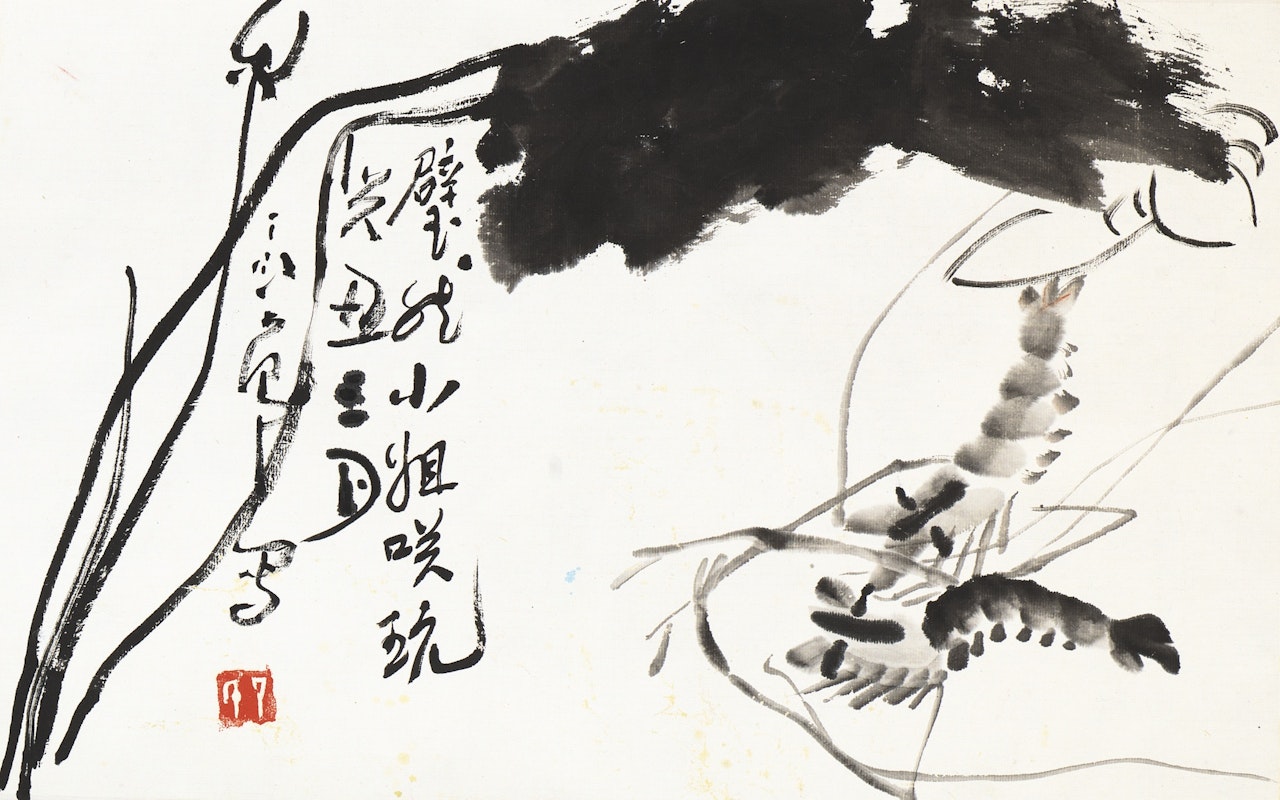 璧小姐咲玩
癸丑三月
丁衍庸寫